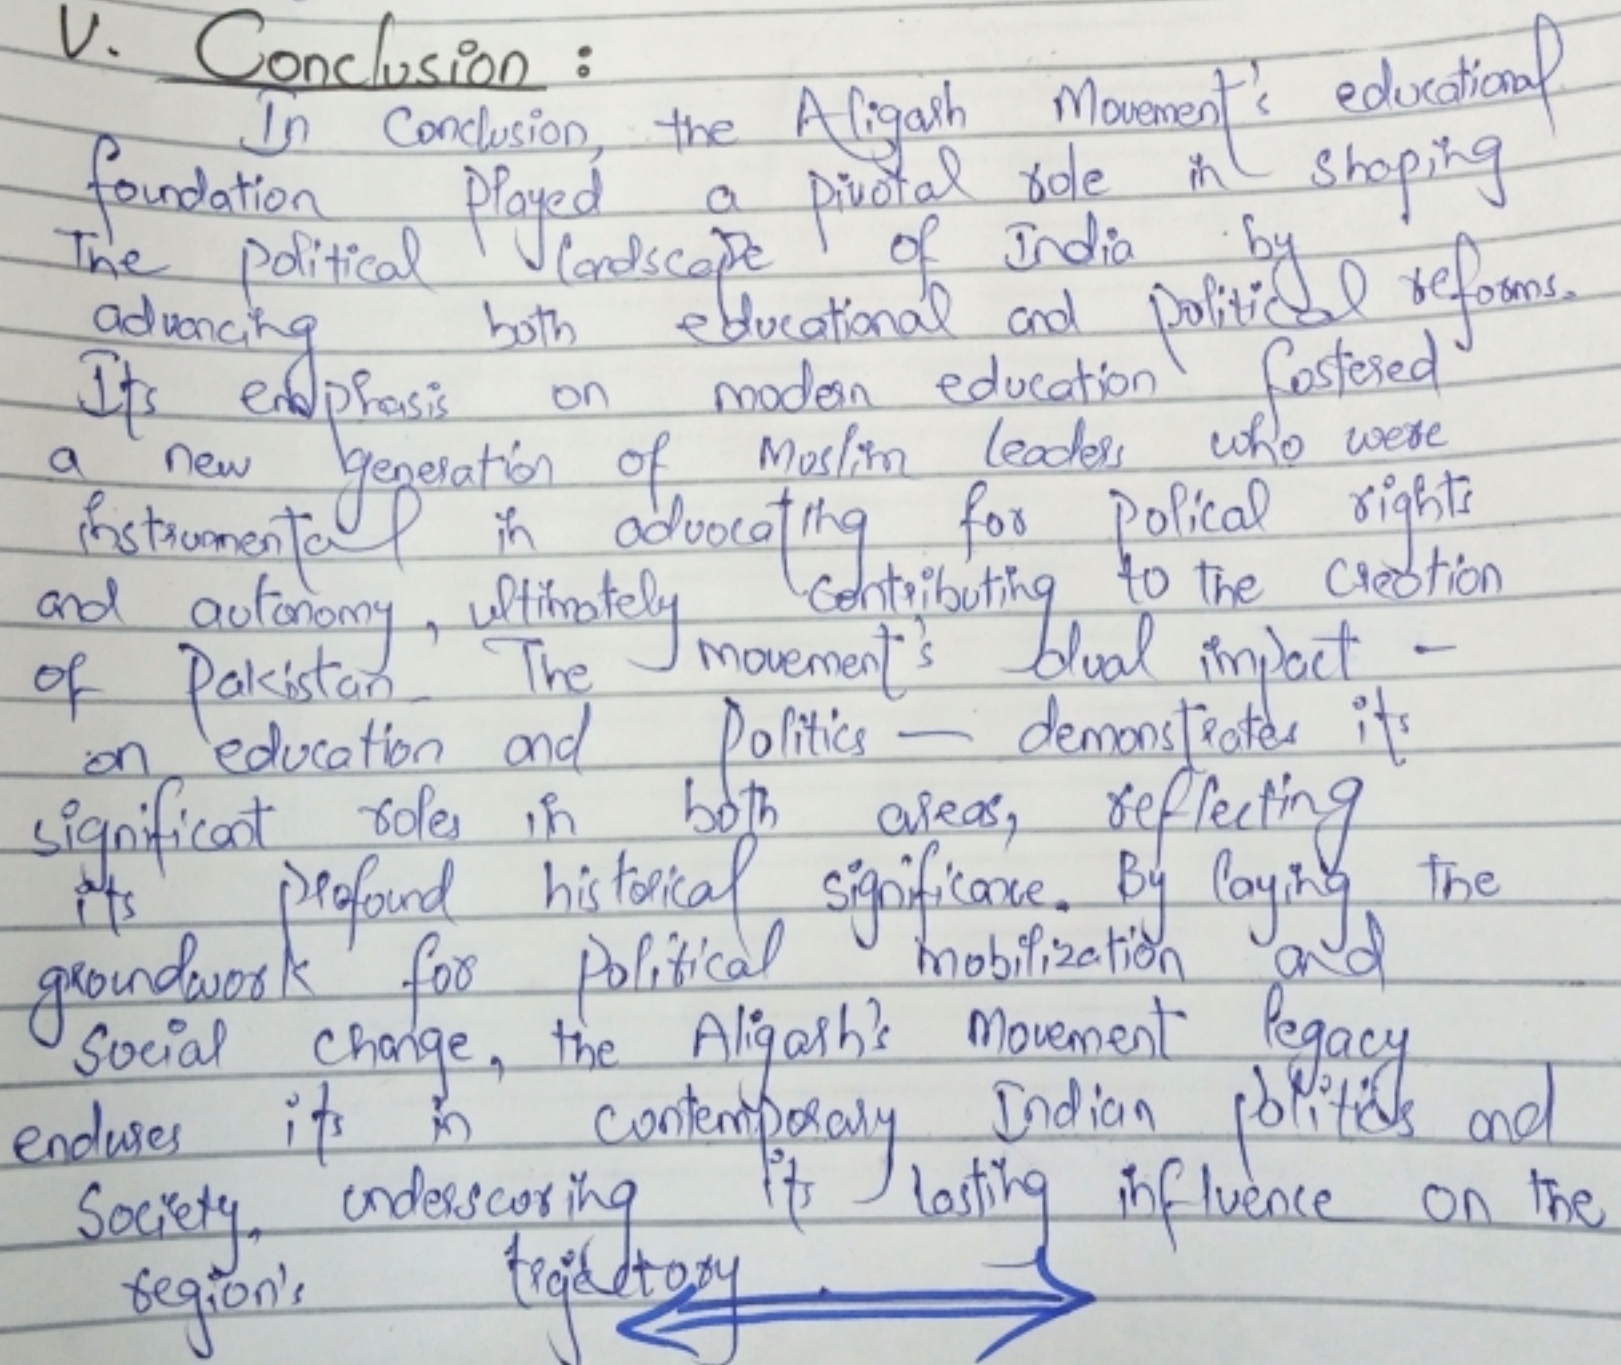 V. Conclusion :
In Conclusion, the Aligarh Movement's educational
foundation played a pivotal role in shaping
The political landscape of India by
advancing both educational and political reforms.
Its emphasis on modern education fostered
a new generation of Muslim leaders who were
instrumental in advocating for polical rights
and autonomy, ultimately contributing to the creation
of Pakistan. The movement's dual impact -
on education and politics — demonstrates its
significant roles in both areas, reflecting
its profound historical significance. By laying the
groundwork for political mobilization and
Social change, the Aligarh's Movement legacy
endures its in contemporary Indian politics and
Society, underscoring its lasting influence on the
region's trajectory